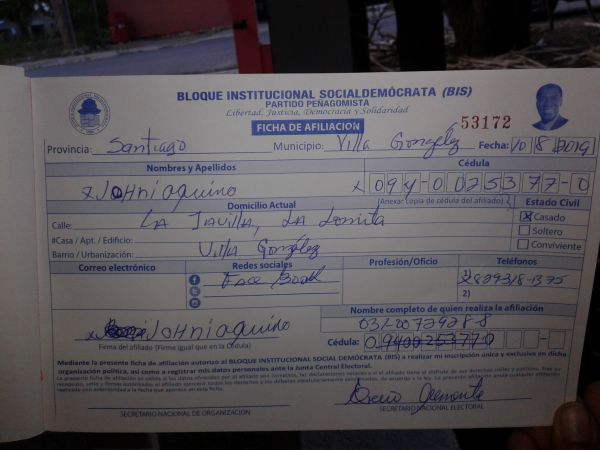 BLOQUE INSTITUCIONAL SOCIALDEMÓCRATA (BIS)
PARTIDO PEÑAGOMISTA
Libertad, Justicia, Democracia y Solidaridad
FICHA DE AFILIACIÓN
53172
Provincia: Santiago Municipio: Villa González Fecha: 10/8/2019
Nombres y Apellidos Cédula
x JOHNi aquino x 094-0025377-0
Domicilio Actual (Anexar copia de cédula del afiliado) Estado Civil
Calle: LA JAVILLA, LA Lomita X Casado
#Casa / Apt. / Edificio: Soltero
Barrio / Urbanización: Villa González Conviviente
Correo electrónico Redes sociales Profesión/Oficio Teléfonos
Face Book 1)
2)
Nombre completo de quien realiza la afiliación
x JOHNi aquino 031-0072928-8
Firma del afiliado (Firme igual que en la Cédula) Cédula: 09400253770
Mediante la presente ficha de afiliación autorizo al BLOQUE INSTITUCIONAL SOCIAL DEMÓCRATA (BIS) a realizar mi inscripción única y exclusiva en dicha
organización política, así como a registrar mis datos personales ante la Junta Central Electoral.
SECRETARIO NACIONAL DE ORGANIZACIÓN SECRETARIO NACIONAL ELECTORAL